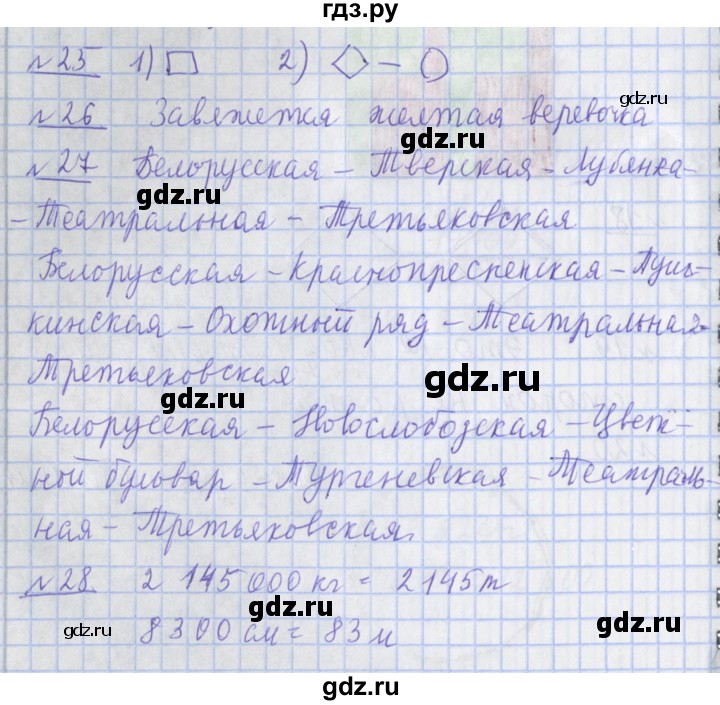 гдз.ру
№25 1) □ 2) ◇ – ○
№26 Завяжется желтая веревочка
gdz.ru
№27 Белорусская – Тверская – Лубянка –
gdz.ru
– Театральная – Третьяковская
gdz.ru
Белорусская – Краснопресненская – Пуш-
кинская – Охотный ряд – Театральная –
gdz.ru
Третьяковская
gdz.ru
gdz.ru
Белорусская – Новослободская – Цвет-
ной бульвар – Тургеневская – Театраль-
gdz.ru
ная – Третьяковская.
gdz.ru
№28 2 145 000 кг = 2145 т
gdz.ru
gdz.ru
8300 см = 83 м
gdz.ru
gdz.ru